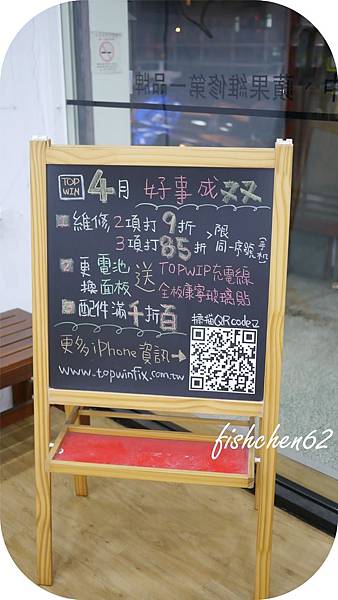 蘋果維修第一品牌
TOP WIN 4月 好事成双
1 維修 2項打9折 > 限
3項打85折 同一序號(手機)
2 更換 電池 面板 送 TOPWIP充電線
全板康寧玻璃貼
3 配件滿千折百
掃描QRcode
更多iPhone資訊→
www.topwinfix.com.tw
fishchen62